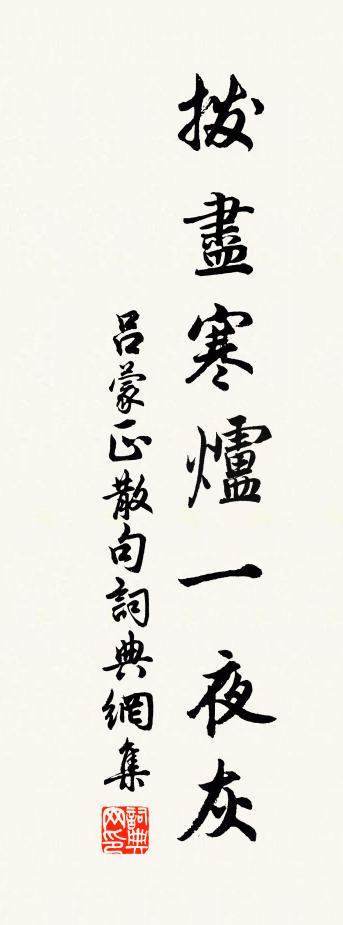 撥盡寒爐一夜灰
呂蒙正散句詞典網集
詞典網印